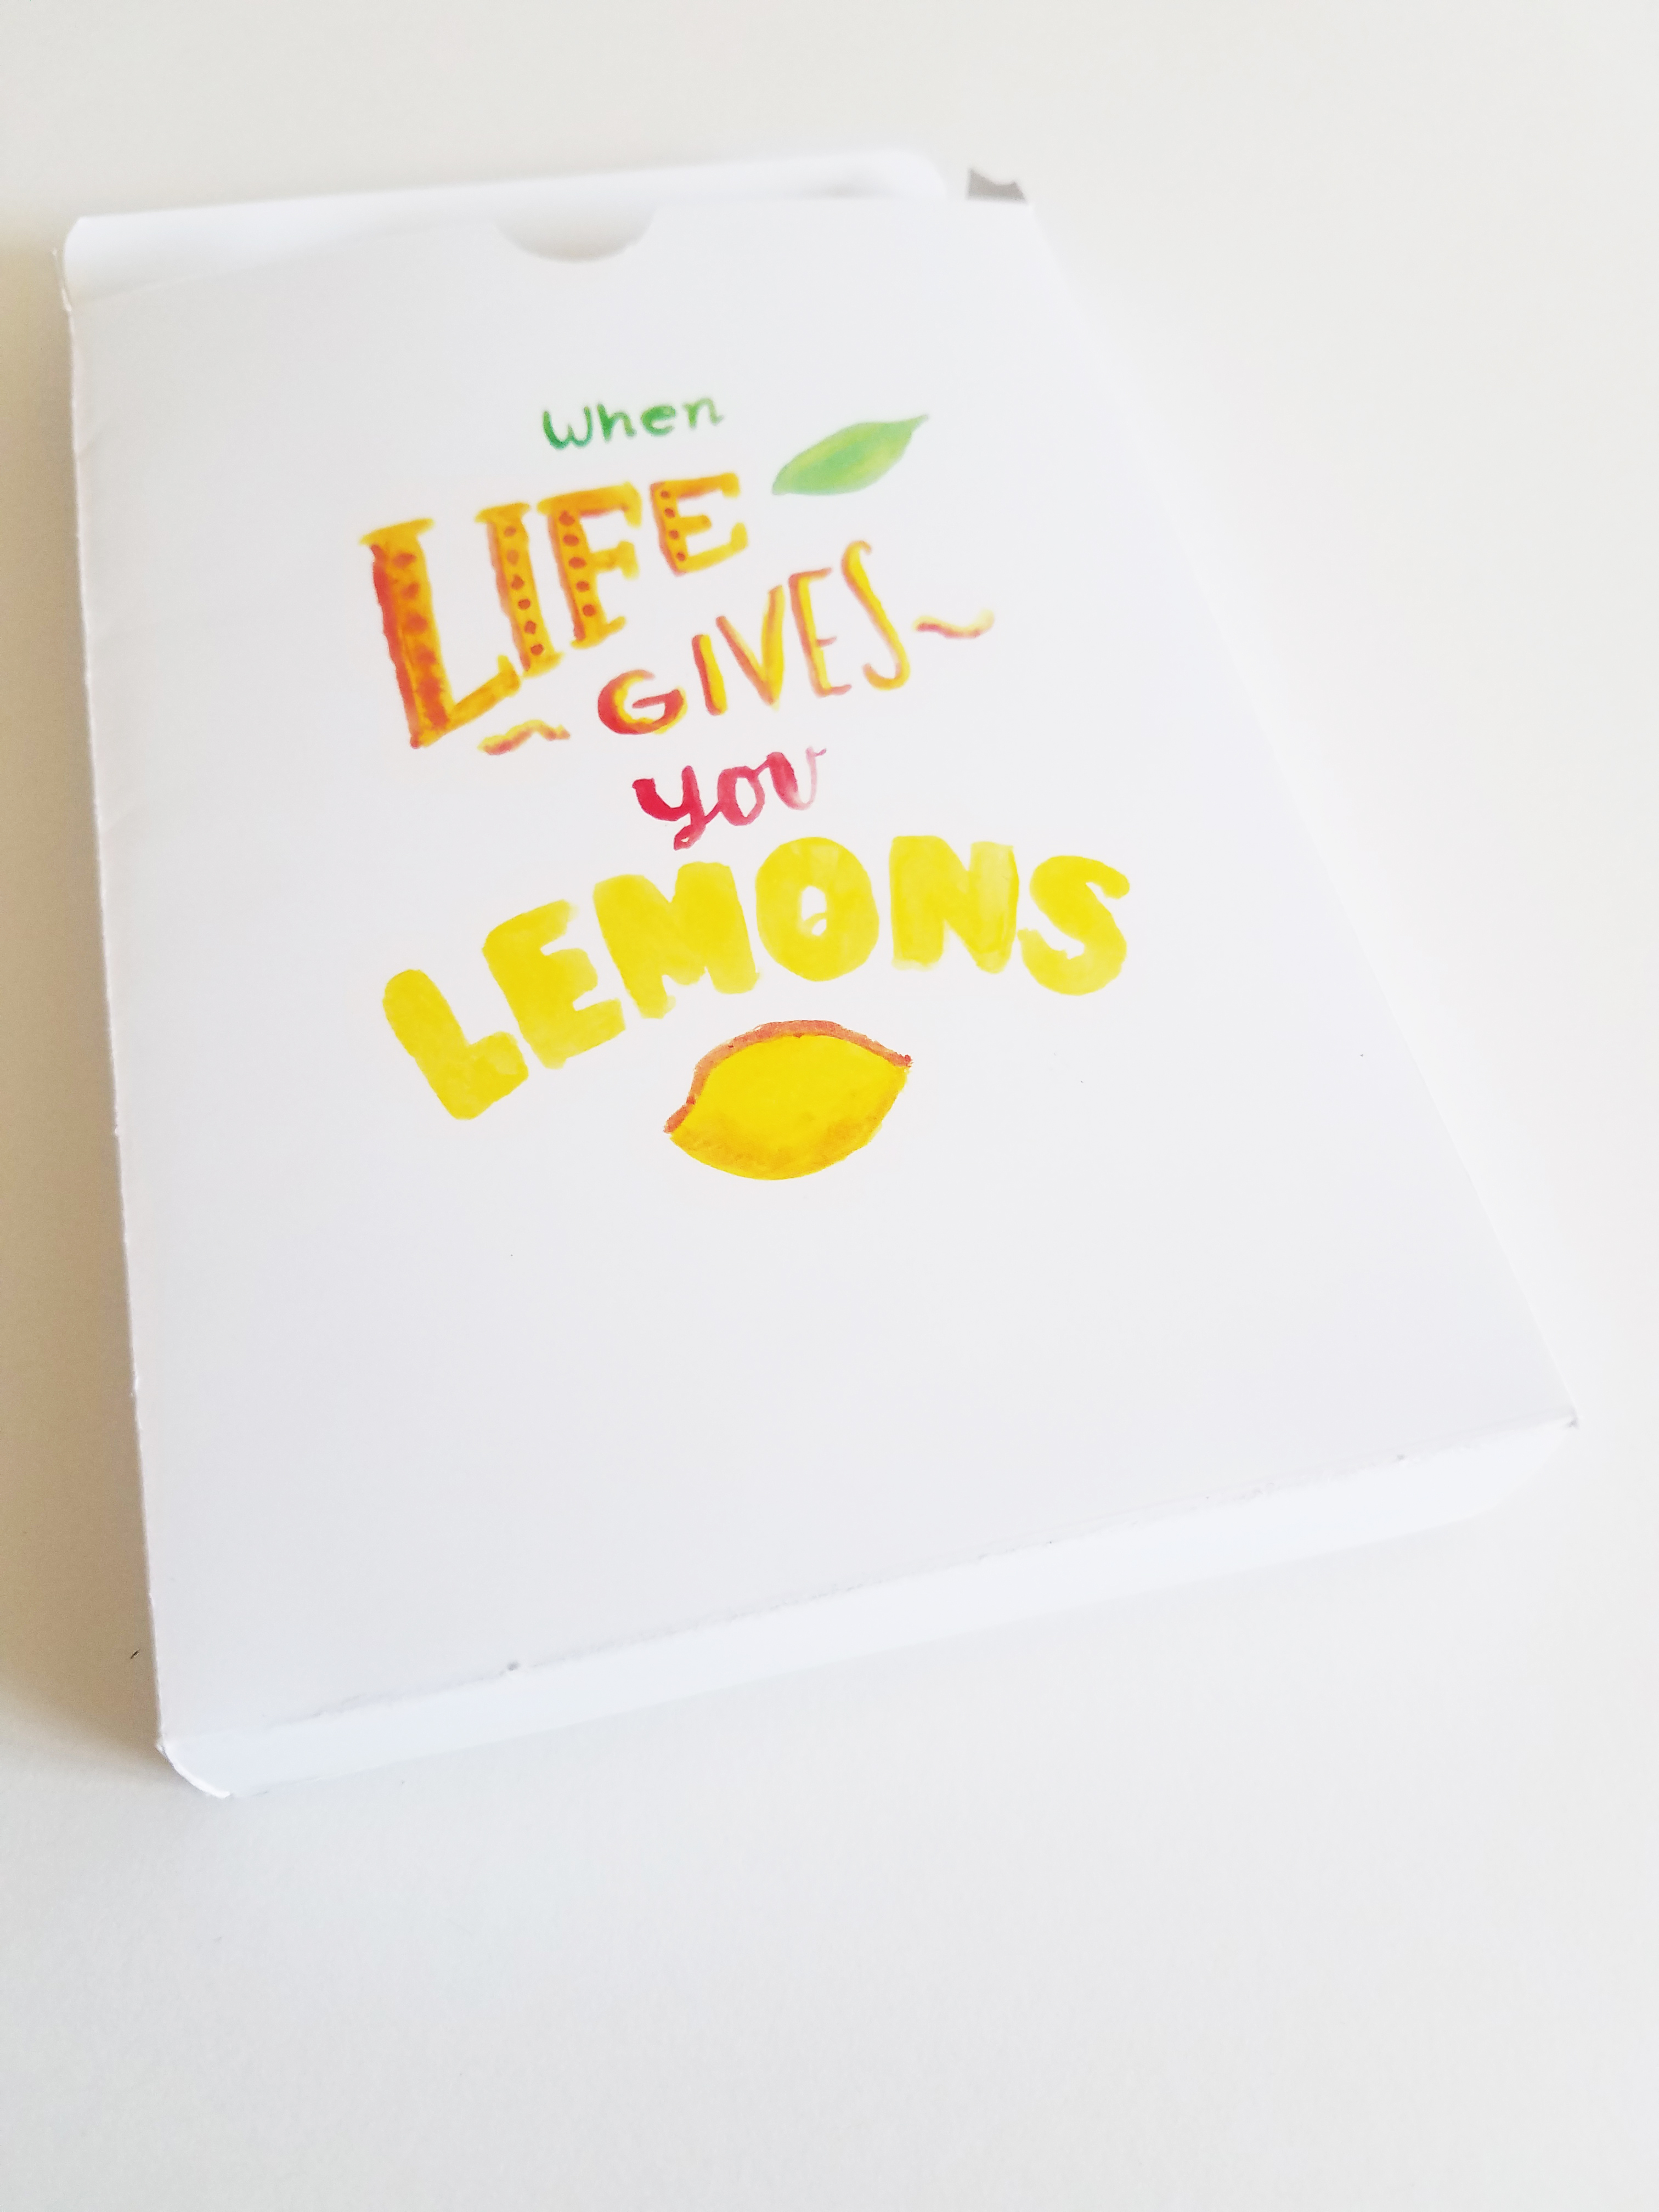 When
LIFE
~GIVES~
you
LEMONS